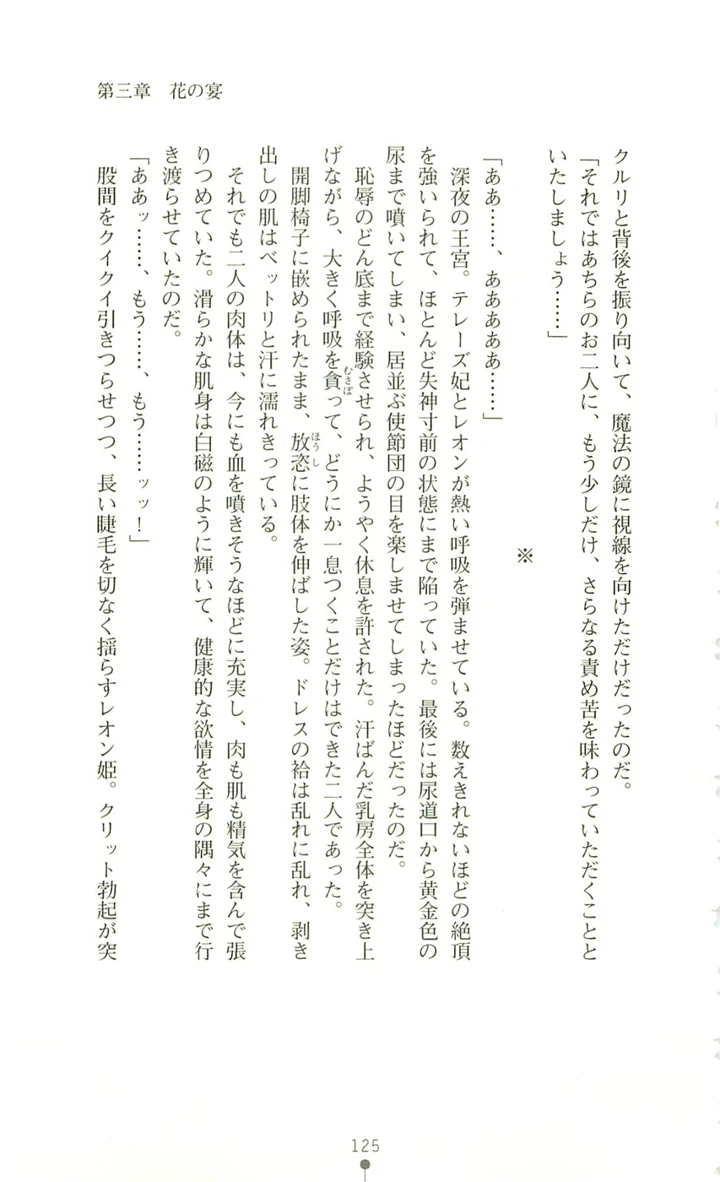 第三章　花の宴
クルリと背後を振り向いて、魔法の鏡に視線を向けただけだったのだ。
「それではあちらのお二人に、もう少しだけ、さらなる責め苦を味わっていただくことと
いたしましょう……」
※
「ああ……、あああああ……」
深夜の王宮。テレーズ妃とレオンが熱い呼吸を弾ませている。数えきれないほどの絶頂
を強いられて、ほとんど失神寸前の状態にまで陥っていた。最後には尿道口から黄金色の
尿まで噴いてしまい、居並ぶ使節団の目を楽しませてしまったほどだったのだ。
恥辱のどん底まで経験させられ、ようやく休息を許された。汗ばんだ乳房全体を突き上
むさぼ
げながら、大きく呼吸を貪って、どうにか一息つくことだけはできた二人であった。
ほうし
開脚椅子に嵌められたまま、放恣に肢体を伸ばした姿。ドレスの袷は乱れに乱れ、剥き
出しの肌はベットリと汗に濡れきっている。
それでも二人の肉体は、今にも血を噴きそうなほどに充実し、肉も肌も精気を含んで張
りつめていた。滑らかな肌身は白磁のように輝いて、健康的な欲情を全身の隅々にまで行
き渡らせていたのだ。
「ああッ……、もう……、もう……ッッ！」
股間をクイクイ引きつらせつつ、長い睫毛を切なく揺らすレオン姫。クリット勃起が突
125